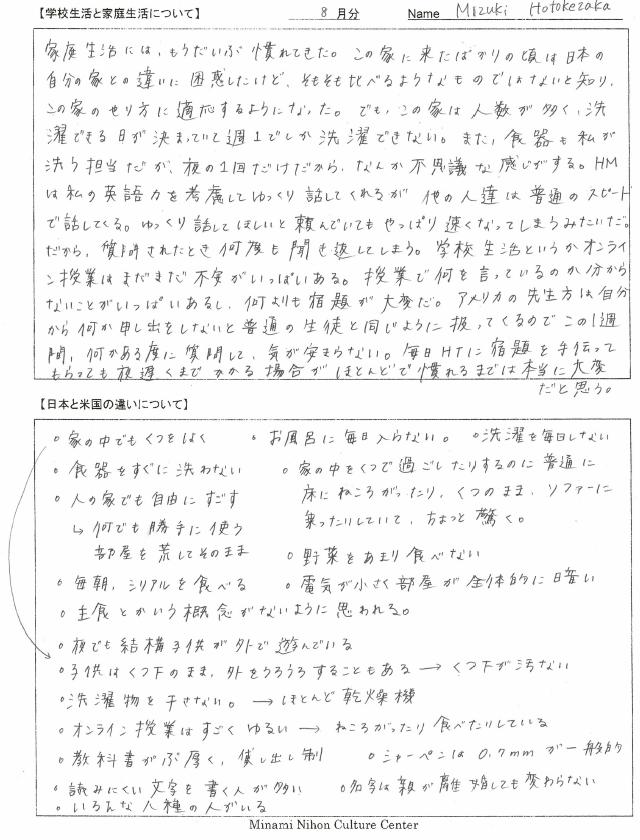 【学校生活と家庭生活について】 8 月分 Name Mizuki Hotokezaka
家庭生活には、もうだいぶ慣れてきた。この家に来たばかりの頃は日本の
自分の家との違いに困惑したけど、そもそも比べるようなものではないと知り、
この家のやり方に適応するようになった。でも、この家は人数が多く、洗
濯できる日が決まっていて週1でしか洗濯できない。また、食器も私が
洗う担当だが、夜の1回だけだから、なんか不思議な感じがする。HM
は私の英語力を考慮してゆっくり話してくれるが他の人達は普通のスピード
で話してくる。ゆっくり話してほしいと頼んでいてもやっぱり速くなってしまうみたいだ。
だから、質問されたとき何度も聞き返してしまう。学校生活というかオンライ
ン授業はまだまだ不安がいっぱいある。授業で何を言っているのか分から
ないことがいっぱいあるし、何よりも宿題が大変だ。アメリカの先生方は自分
から何か申し出をしないと普通の生徒と同じように扱ってくるのでこの1週
間、何かある度に質問して、気が安まらない。毎日HTに宿題を手伝って
もらっても夜遅くまでかかる場合がほとんどで慣れるまでは本当に大変
だと思う。
【日本と米国の違いについて】
◦家の中でもくつをはく ◦お風呂に毎日入らない。 ◦洗濯を毎日しない
◦食器をすぐに洗わない ◦家の中をくつで過ごしたりするのに普通に
◦人の家でも自由にすごす 床にねころがったり、くつのまま、ソファーに
↳何でも勝手に使う 乗ったりしていて、ちょっと驚く。
部屋を荒してそのまま ◦野菜をあまり食べない
◦毎朝、シリアルを食べる ◦電気が小さく部屋が全体的に暗い
◦主食とかいう概念がないように思われる。
◦夜でも結構子供が外で遊んでいる
◦子供はくつ下のまま、外をうろうろすることもある → くつ下が汚ない
◦洗濯物を干さない。 → ほとんど乾燥機
◦オンライン授業はすごくゆるい → ねころがったり食べたりしている
◦教科書がぶ厚く、貸し出し制 ◦シャーペンは0.7mmが一般的
◦読みにくい文字を書く人が多い ◦名字は親が離婚しても変わらない
◦いろんな人種の人がいる
Minami Nihon Culture Center